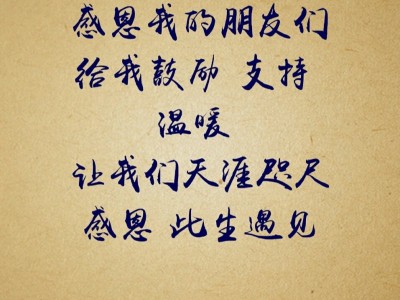 感恩我的朋友们
给我鼓励 支持
温暖
让我们天涯咫尺
感恩 此生遇见